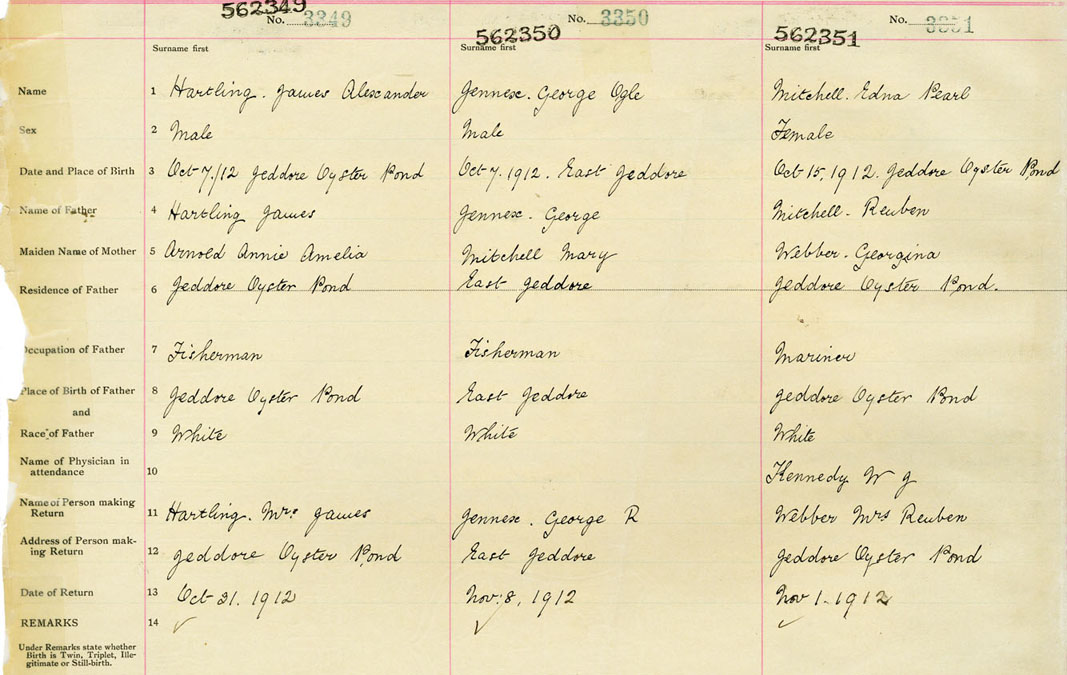 562349 562350 562351
No. 3349 No. 3350 No. 3351
Surname first Surname first Surname first
Name 1 Hartling. James Alexander Jennex. George Ogle Mitchell. Edna Pearl
Sex 2 Male Male Female
Date and Place of Birth 3 Oct 7/12 Jeddore Oyster Pond Oct 7. 1912. East Jeddore Oct 15, 1912. Jeddore Oyster Pond
Name of Father 4 Hartling James Jennex. George Mitchell. Reuben
Maiden Name of Mother 5 Arnold Annie Amelia Mitchell Mary Webber. Georgina
Residence of Father 6 Jeddore Oyster Pond East Jeddore Jeddore Oyster Pond.
Occupation of Father 7 Fisherman Fisherman Mariner
Place of Birth of Father 8 Jeddore Oyster Pond East Jeddore Jeddore Oyster Pond
and
Race of Father 9 White White White
Name of Physician in
attendance 10 Kennedy W J
Name of Person making
Return 11 Hartling. Mrs James Jennex. George R Webber Mrs Reuben
Address of Person mak-
ing Return 12 Jeddore Oyster Pond East Jeddore Jeddore Oyster Pond
Date of Return 13 Oct 21. 1912 Nov. 8, 1912 Nov 1. 1912
REMARKS 14 ✓ ✓ ✓
Under Remarks state whether
Birth is Twin, Triplet, Ille-
gitimate or Still-birth.